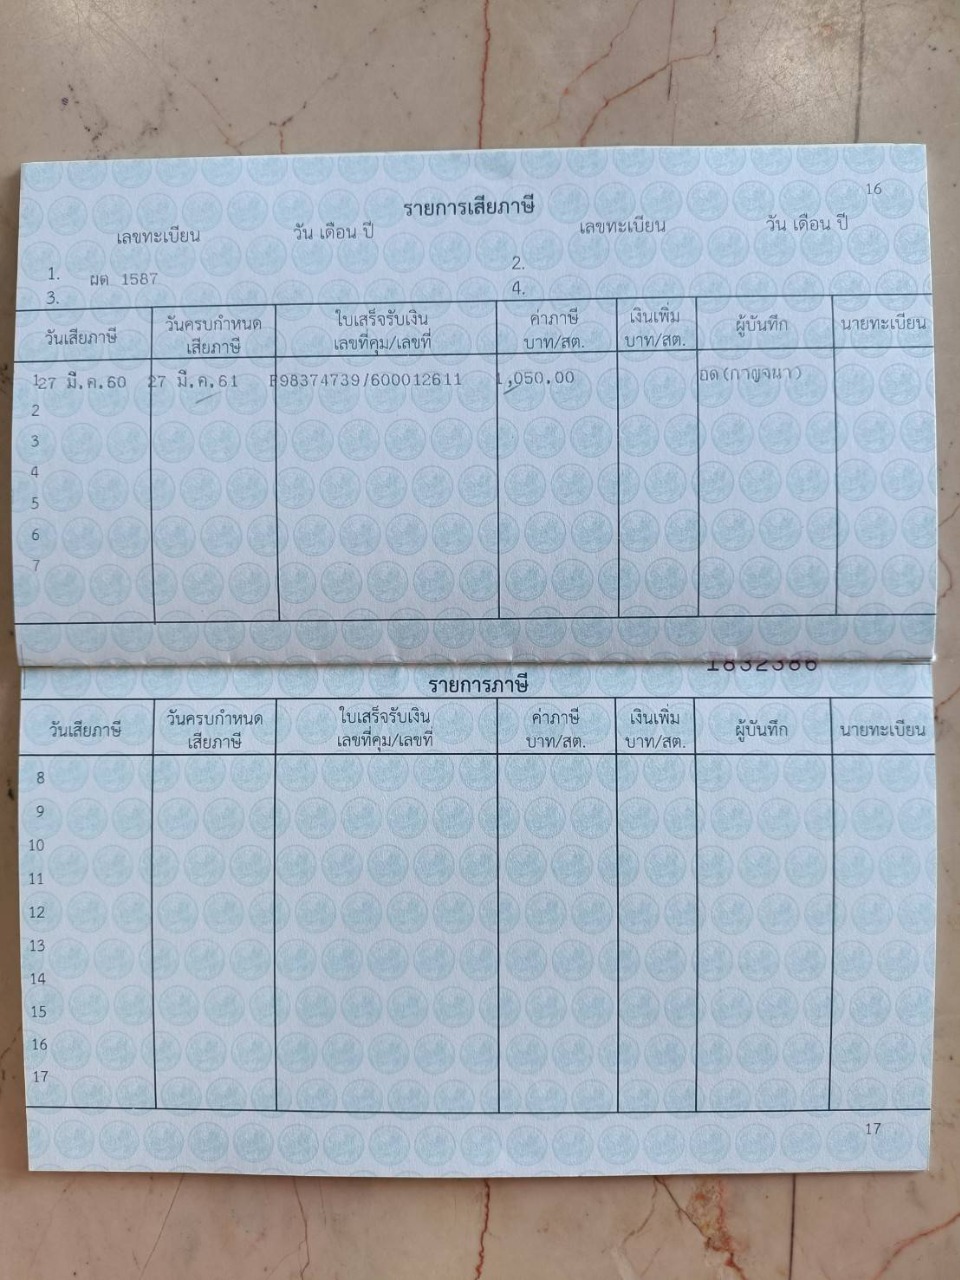 16
รายการเสียภาษี
เลขทะเบียน วัน เดือน ปี เลขทะเบียน วัน เดือน ปี
1. ผด 1587 2.
3. 4.
วันเสียภาษี วันครบกำหนด เสียภาษี ใบเสร็จรับเงิน เลขที่คุม/เลขที่ ค่าภาษี บาท/สต. เงินเพิ่ม บาท/สต. ผู้บันทึก นายทะเบียน
1 27 มี.ค.60 27 มี.ค.61 F98374739/600012611 1,050.00 อด(กาญจนา)
2
3
4
5
6
7
1832386
รายการภาษี
วันเสียภาษี วันครบกำหนด เสียภาษี ใบเสร็จรับเงิน เลขที่คุม/เลขที่ ค่าภาษี บาท/สต. เงินเพิ่ม บาท/สต. ผู้บันทึก นายทะเบียน
8
9
10
11
12
13
14
15
16
17
17